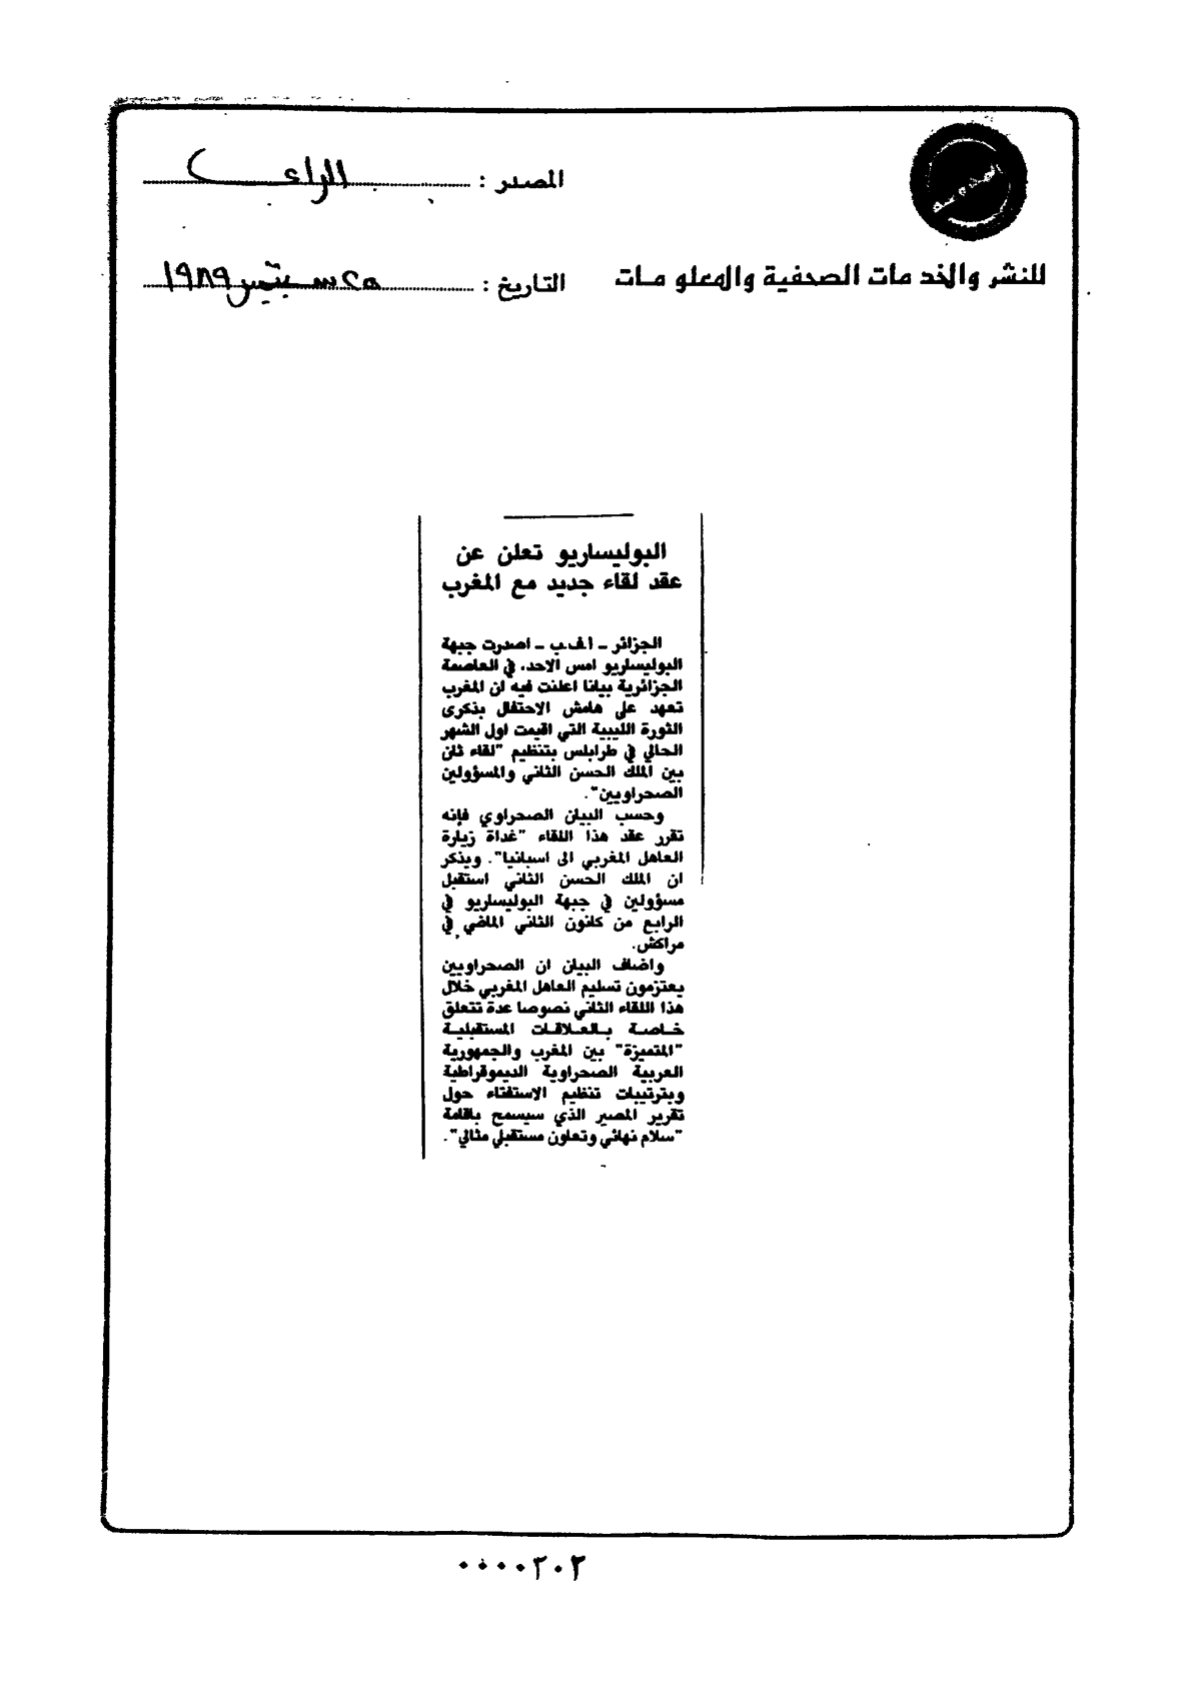 المصدر : الراي
للنشر والخدمات الصحفية والمعلومات
التاريخ : ٢٥ سبتمبر ١٩٨٩
البوليساريو تعلن عن
عقد لقاء جديد مع المغرب
الجزائر - أ.ف.ب - اصدرت جبهة
البوليساريو امس الاحد، في العاصمة
الجزائرية بيانا اعلنت فيه ان المغرب
تعهد على هامش الاحتفال بذكرى
الثورة الليبية التي اقيمت اول الشهر
الحالي في طرابلس بتنظيم "لقاء ثان
بين الملك الحسن الثاني والمسؤولين
الصحراويين".
وحسب البيان الصحراوي فإنه
تقرر عقد هذا اللقاء "غداة زيارة
العاهل المغربي الى اسبانيا". ويذكر
ان الملك الحسن الثاني استقبل
مسؤولين في جبهة البوليساريو في
الرابع من كانون الثاني الماضي في
مراكش.
واضاف البيان ان الصحراويين
يعتزمون تسليم العاهل المغربي خلال
هذا اللقاء الثاني نصوصا عدة تتعلق
خاصة بالعلاقات المستقبلية
"المتميزة" بين المغرب والجمهورية
العربية الصحراوية الديموقراطية
وبترتيبات تنظيم الاستفتاء حول
تقرير المصير الذي سيسمح باقامة
"سلام نهائي وتعاون مستقبلي مثالي".
٠٠٠٠٢٠٢